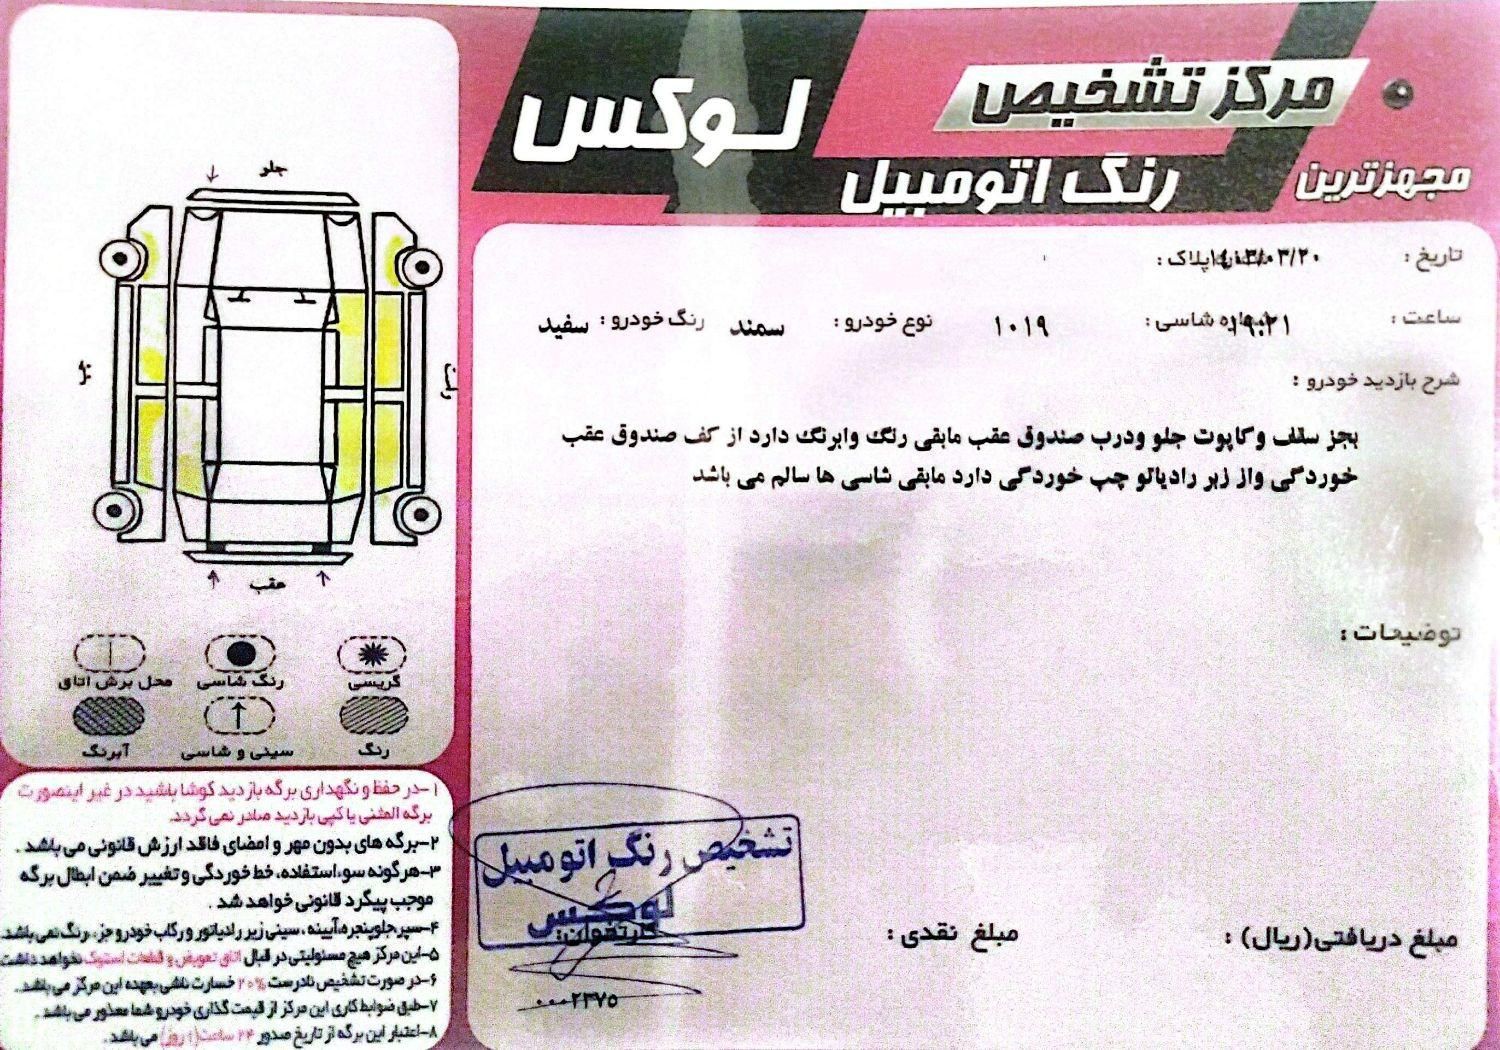 مرکز تشخیص
لوکس
مجهزترین
رنگ اتومبیل
تاریخ : ۱۴۰۳/۰۳/۲۰ پلاک :
ساعت : ۱۹:۲۱ شماره شاسی : ۱۰۱۹ نوع خودرو : سمند رنگ خودرو : سفید
شرح بازدید خودرو :
بجز سقف وکاپوت جلو ودرب صندوق عقب مابقی رنگ وابرنگ دارد از کف صندوق عقب
خوردگی واز زیر رادیاتو چپ خوردگی دارد مابقی شاسی ها سالم می باشد
توضیحات :
مبلغ دریافتی(ریال) : مبلغ نقدی : کارتخوان:
تشخیص رنگ اتومبیل
لوکس
۰۰۰۲۳۷۵
جلو
عقب
گریسی رنگ شاسی محل برش اتاق
رنگ سینی و شاسی آبرنگ
۱-در حفظ و نگهداری برگه بازدید کوشا باشید در غیر اینصورت
برگه المثنی یا کپی بازدید صادر نمی گردد.
۲-برگه های بدون مهر و امضای فاقد ارزش قانونی می باشد .
۳-هرگونه سو،استفاده، خط خوردگی و تغییر ضمن ابطال برگه
موجب پیگرد قانونی خواهد شد .
۴-سپر،جلوپنجره،آیینه ، سینی زیر رادیاتور و رکاب خودرو جز، رنگ نمی باشد.
۵-این مرکز هیچ مسئولیتی در قبال اتاق تعویض و قطعات استوک نخواهد داشت
۶-در صورت تشخیص نادرست ۲۰% خسارت ناشی بعهده این مرکز می باشد.
۷-طبق ضوابط کاری این مرکز از قیمت گذاری خودرو شما معذور می باشد .
۸-اعتبار این برگه از تاریخ صدور ۲۴ ساعت(۱ روز) می باشد .